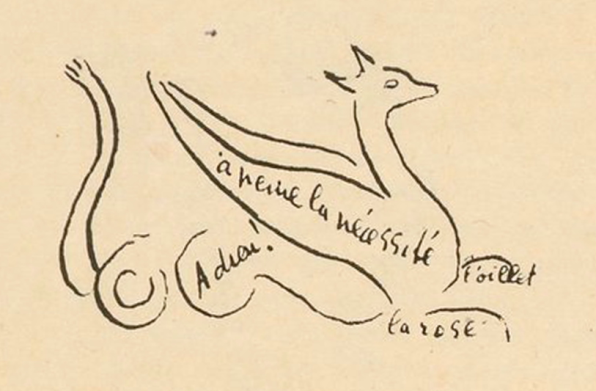 à peine la nécessité
Adieu!
l'œillet
la rose